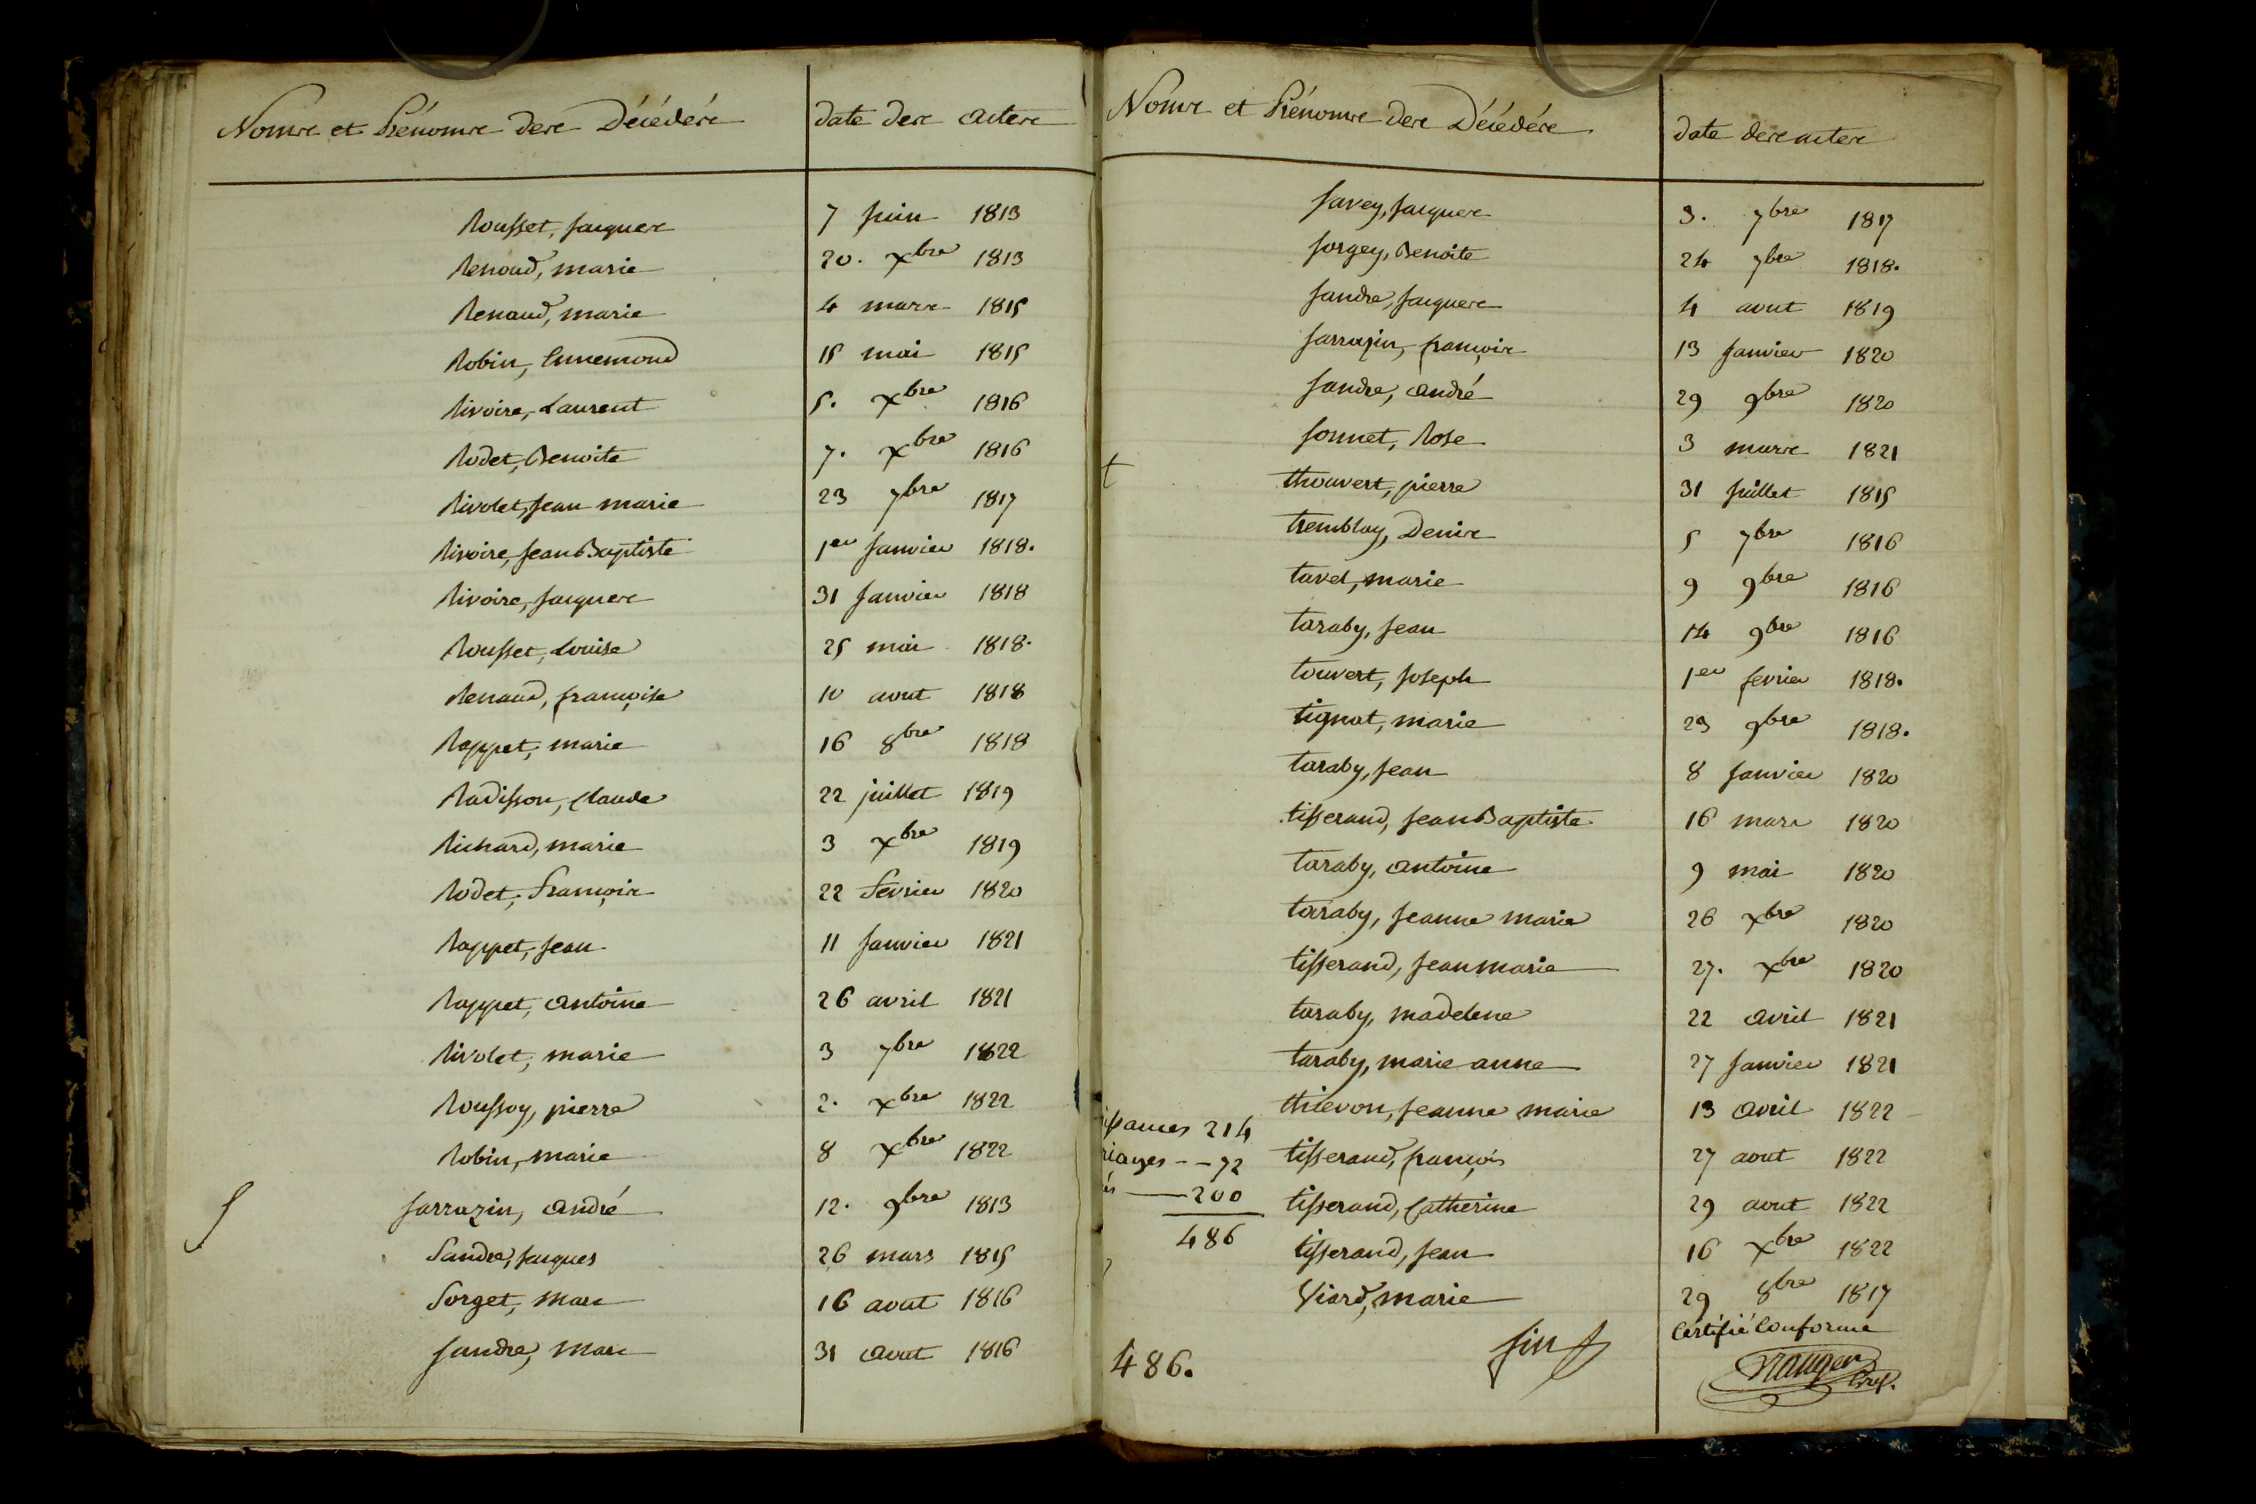 Noms et Prénoms des Décédés date des actes
Rousset, Jacques 7 Juin 1813
Renoud, marie 20. Xbre 1813
Renaud, marie 4 mars 1815
Robin, Ennemond 15 mai 1815
Rivoire, Laurent 5. Xbre 1816
Rodet, Benoite 7. Xbre 1816
Rivolet, Jean marie 23 7bre 1817
Rivoire, Jean Baptiste 1er Janvier 1818.
Rivoire, Jacques 31 Janvier 1818
Rousset, Louise 25 mai 1818.
Renaud, françoise 10 aout 1818
Rappet, marie 16 8bre 1818
Radisson, Claude 22 juillet 1819
Richard, marie 3 Xbre 1819
Rodet, François 22 Fevrier 1820
Rappet, Jean 11 Janvier 1821
Rappet, antoine 26 avril 1821
Rivolet, marie 3 7bre 1822
Roussoy, pierre 2. Xbre 1822
Robin, marie 8 Xbre 1822
S Sarrazin, andré 12. 9bre 1813
Sandre, Jacques 26 mars 1815
Sorget, Marc 16 aout 1816
Sandre, Marc 31 aout 1816
Noms et Prénoms des Décédés date des actes
Savey, Jacques 3. 7bre 1817
Sorgey, Benoite 24 7bre 1818.
Sandre, Jacques 4 aout 1819
Sarrazin, françois 13 Janvier 1820
Sandre, andré 29 9bre 1820
Sonnet, Rose 3 mars 1821
t thouvert, pierre 31 Juillet 1815
tremblay, Denis 5 7bre 1816
tavel, marie 9 9bre 1816
taraby, Jean 14 9bre 1816
touvert, Joseph 1er fevrier 1818.
tignat, marie 23 9bre 1818.
taraby, Jean 8 Janvier 1820
tisserand, Jean Baptiste 16 mars 1820
taraby, antoine 9 mai 1820
taraby, Jeanne marie 26 Xbre 1820
tisserand, Jean marie 27. Xbre 1820
taraby, madelene 22 avril 1821
taraby, marie anne 27 Janvier 1821
thievon, Jeanne marie 13 avril 1822
issances 214
tisserand, françois 27 aout 1822
riages -- 72
tisserand, Catherine 29 aout 1822
ès — 200
tisserand, Jean 16 Xbre 1822
486
Viard, marie 29 8bre 1817
fin
Certifié Conforme
486.